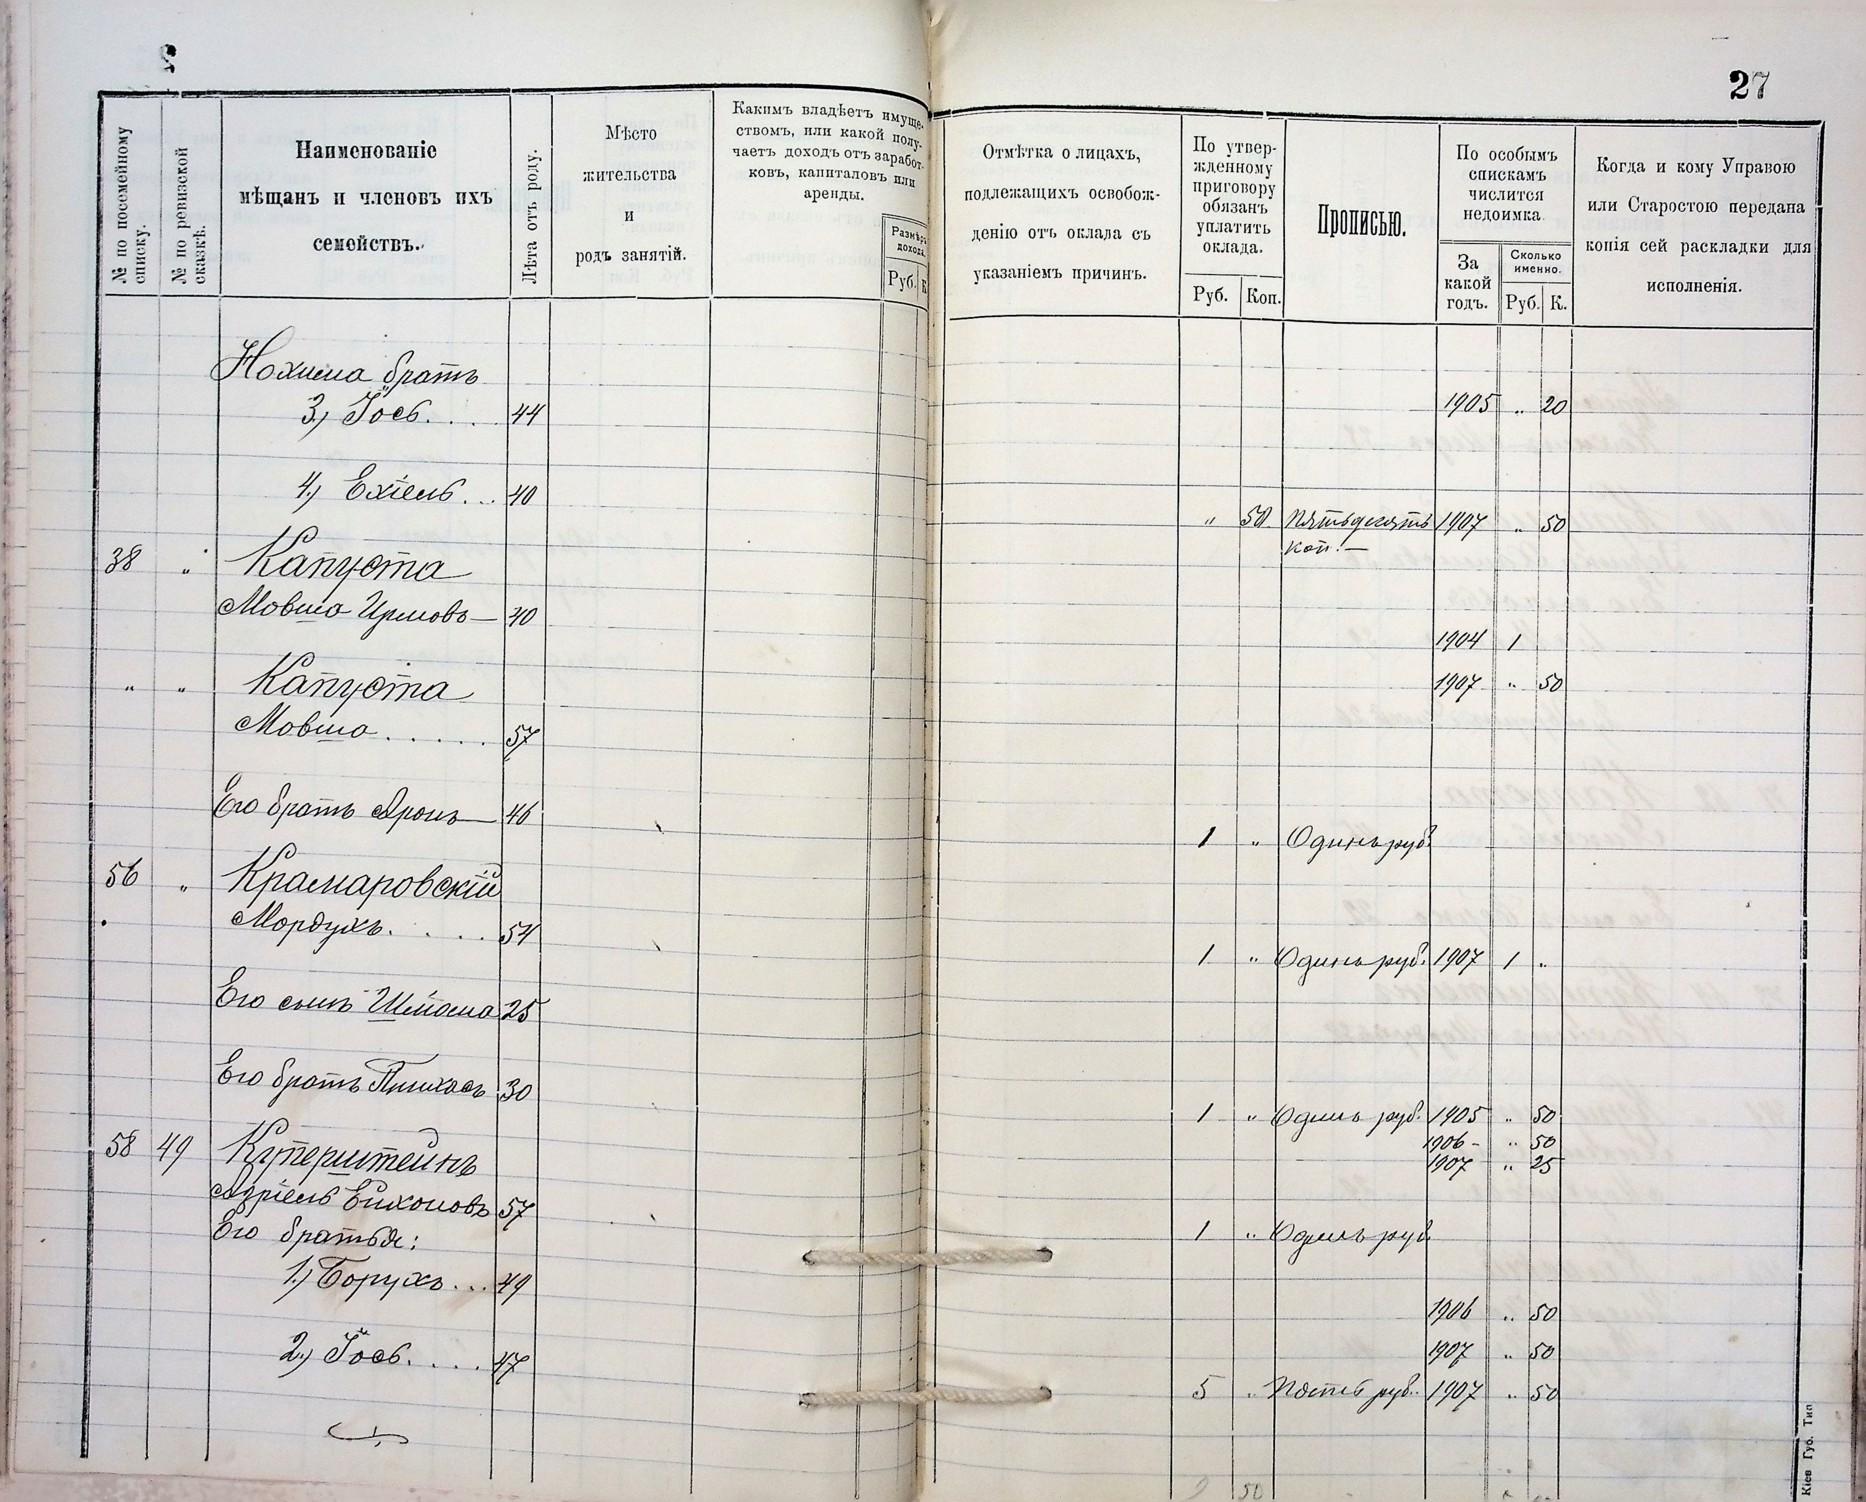 27
№ по посемейному списку.
№ по ревизской сказкѣ.
Наименованіе
мѣщанъ и членовъ ихъ
семействъ.
Лѣта отъ роду.
Мѣсто
жительства
и
родъ занятій.
Какимъ владѣетъ имуще-
ствомъ, или какой полу-
чаетъ доходъ отъ заработ-
ковъ, капиталовъ или
аренды.
Размѣръ
дохода.
Руб. К
Отмѣтка о лицахъ,
подлежащихъ освобож-
денію отъ оклада съ
указаніемъ причинъ.
По утвер-
жденному
приговору
обязанъ
уплатить
оклада.
Руб. Коп.
Прописью.
По особымъ
спискамъ
числится
недоимка
За
какой
годъ.
Сколько
именно.
Руб. К.
Когда и кому Управою
или Старостою передана
копія сей раскладки для
исполненія.
Нохима братъ
3) Іось.... 44 1905 " 20
4) Ехіель... 40 " 50 Пятьдесятъ 1907 " 50
коп.—
38 " Капуста
Мовша Ирмовъ— 40
1904 1
" " Капуста 1907 " 50
Мовша...... 57
Его братъ Аронъ— 46 1 " Одинъ руб.
56 " Крамаровскій
Мордухъ..... 54 1 " Одинъ руб. 1907 1 "
Его сынъ Шлйома 25
Его братъ Пинхасъ 30 1 " Одинъ руб. 1905 " 50
58 49 Куперштейнъ 1906- " 50
1907 " 25
Азріель 57
Его братья: 1 " Одинъ руб.
1) Борухъ... 49
1906 " 50
2) Іось.... 47 1907 " 50
5 " Пять руб. 1907 " 50
50
Кіев Губ. Тип